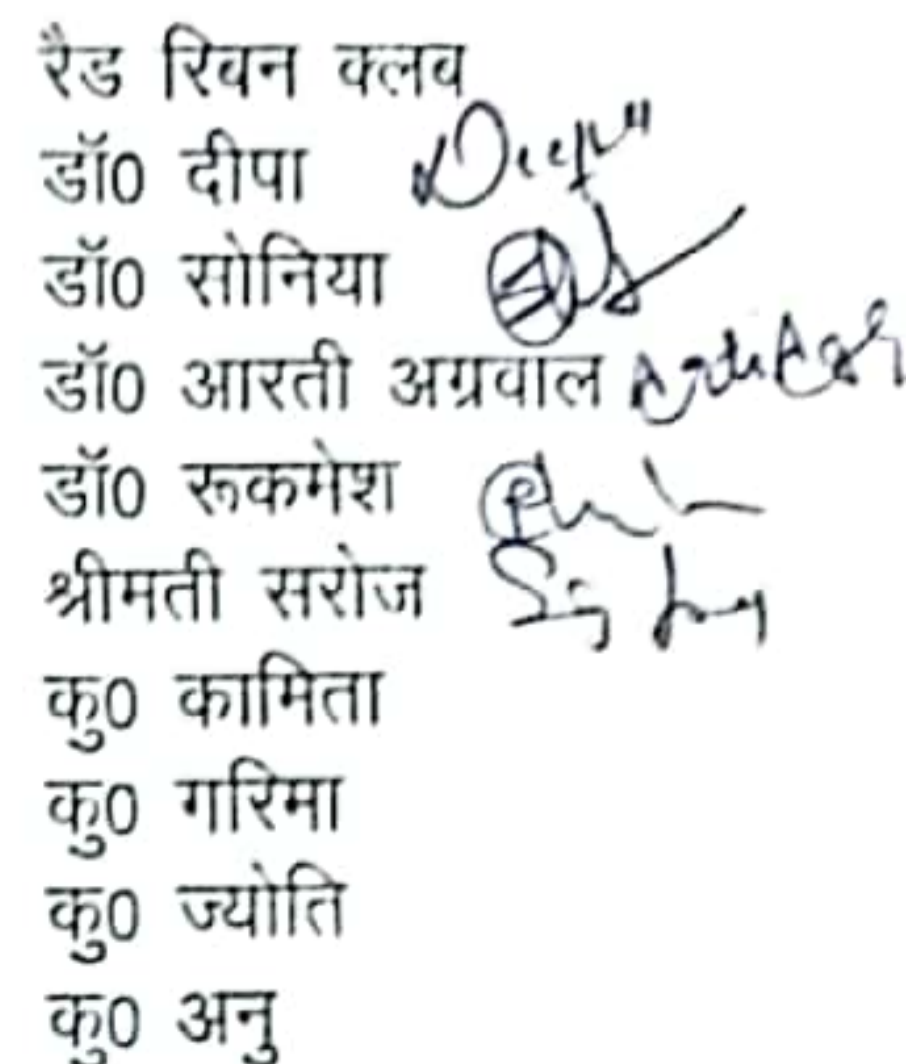 रैड रिबन क्लब
डॉ0 दीपा Deepa
डॉ0 सोनिया
डॉ0 आरती अग्रवाल
डॉ0 रूकमेश
श्रीमती सरोज
कु0 कामिता
कु0 गरिमा
कु0 ज्योति
कु0 अनु